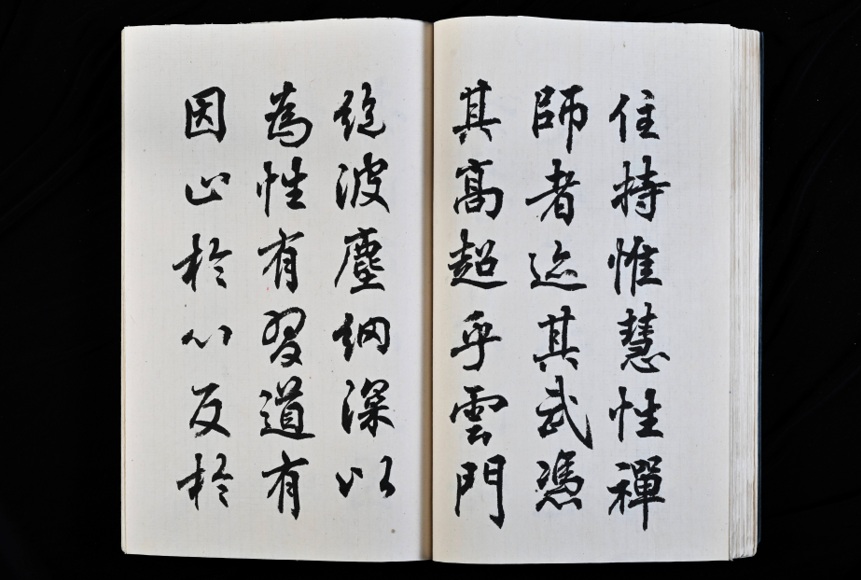 住持惟慧性禪
師者迹其武憑
其高超乎雲門
絶波塵網深以
為性有習道有
因止於心反於